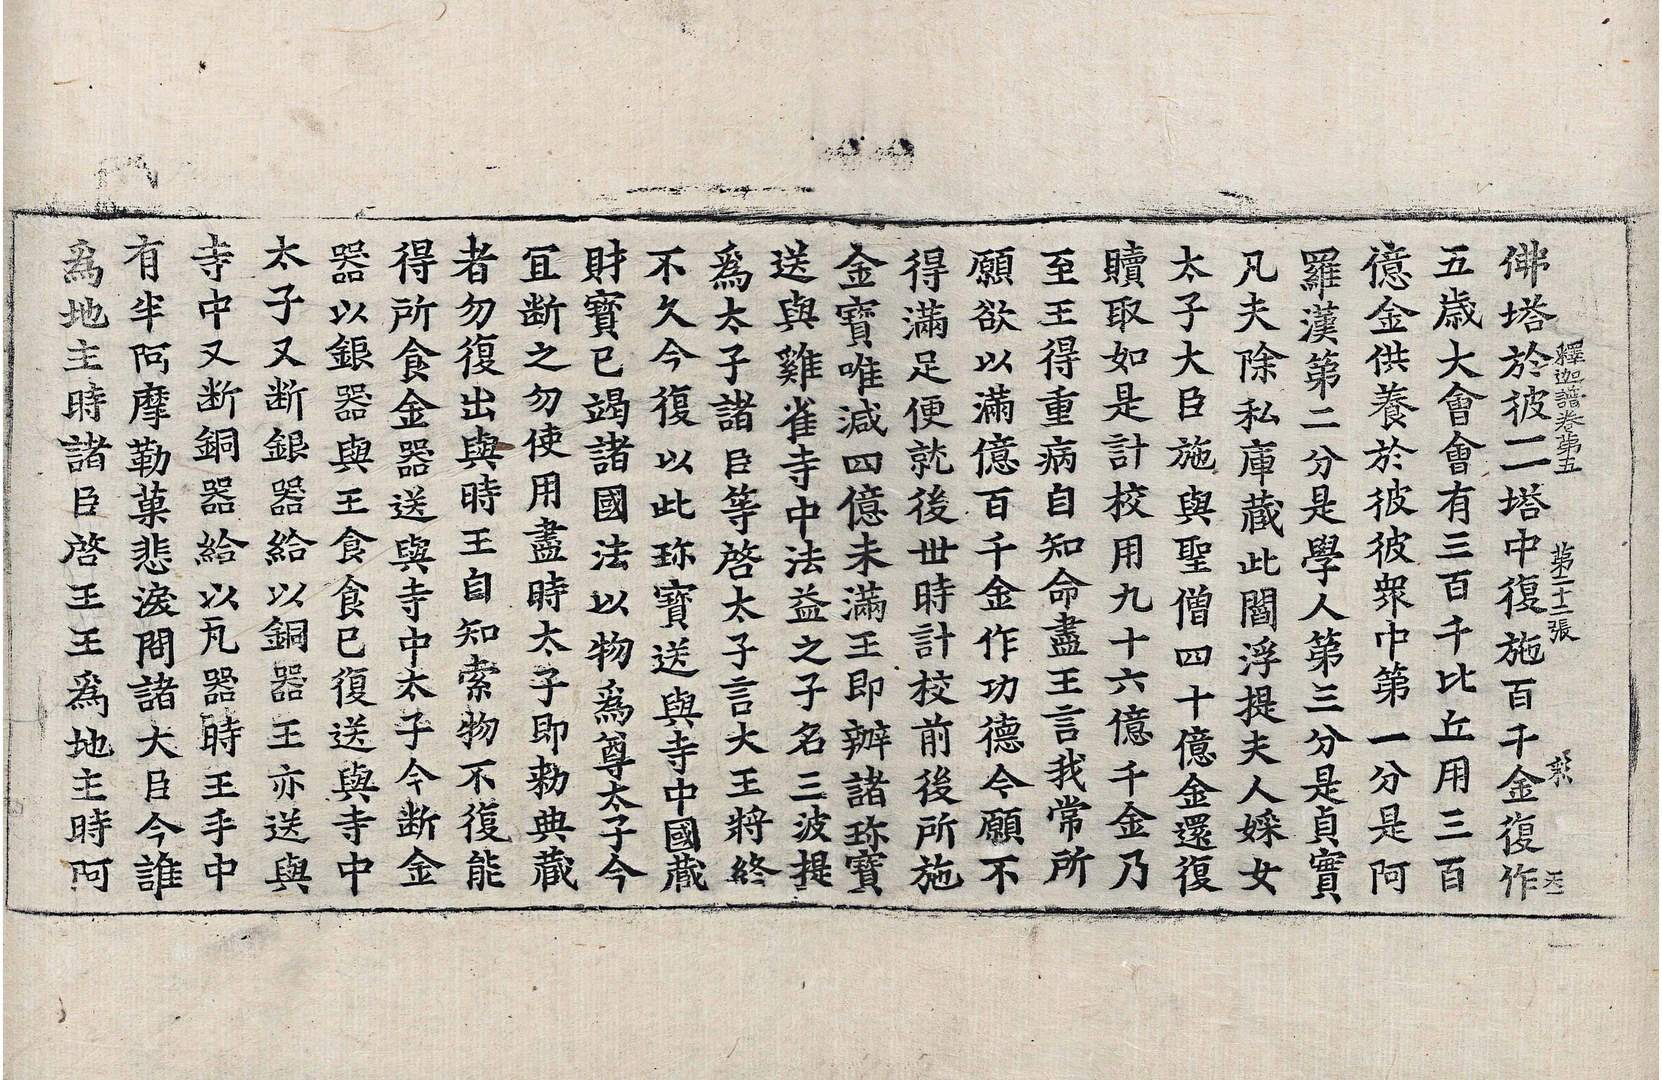 釋迦譜卷第五 第二十二張 彩
佛塔於彼一一塔中復施百千金復作
五歲大會會有三百千比丘用三百
億金供養於彼彼衆中第一分是阿
羅漢第二分是學人第三分是貞實
凡夫除私庫藏此閻浮提夫人婇女
太子大臣施與聖僧四十億金還復
贖取如是計校用九十六億千金乃
至王得重病自知命盡王言我常所
願欲以滿億百千金作功德今願不
得滿足便就後世時計校前後所施
金寶唯減四億未滿王即辦諸珎寶
送與雞雀寺中法益之子名三波提
爲太子諸臣等啓太子言大王將終
不久今復以此珎寶送與寺中國藏
財寶已竭諸國法以物爲尊太子今
宜断之勿使用盡時太子即勑典藏
者勿復出與時王自知索物不復能
得所食金器送與寺中太子令断金
器以銀器與王食食已復送與寺中
太子又断銀器給以銅器王亦送與
寺中又断銅器給以凡器時王手中
有半阿摩勒菓悲淚問諸大臣今誰
爲地主時諸臣啓王王爲地主時阿